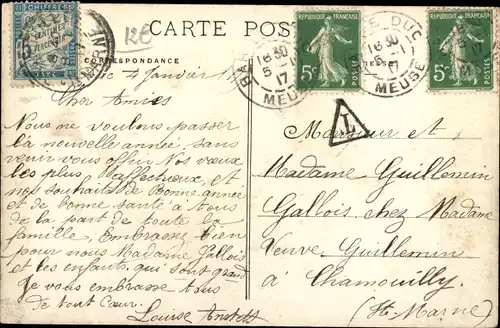 CHIFFRE
5
12€
CARTE POS
CORRESPONDANCE
RÉPUBLIQUE FRANÇAISE
5c
POSTES
RÉPUBLIQUE FRANÇAISE
5c
POSTES
BAR
16 30
5 -1
17
MEUSE
LE DUC
16 30
5 -1
17
MEUSE
T
4 Janvier 1
Cher Amies
Nous ne voulons passer
la nouvelle année sans
venir vous offrir Nos vœux
les plus affectueux et
nos souhaits de Bonne année
et de bonne santé a tous
de la part de toute la
famille, Embrassez bien
pour nous Madame Gallois
et les enfants qui sont grand
Je vous embrasse tous
de tout Cœur.
Louise
Monsieur et
Madame Guillemin
Gallois chez Madame
Veuve Guillemin
à Chamouilly
(Hte Marne)